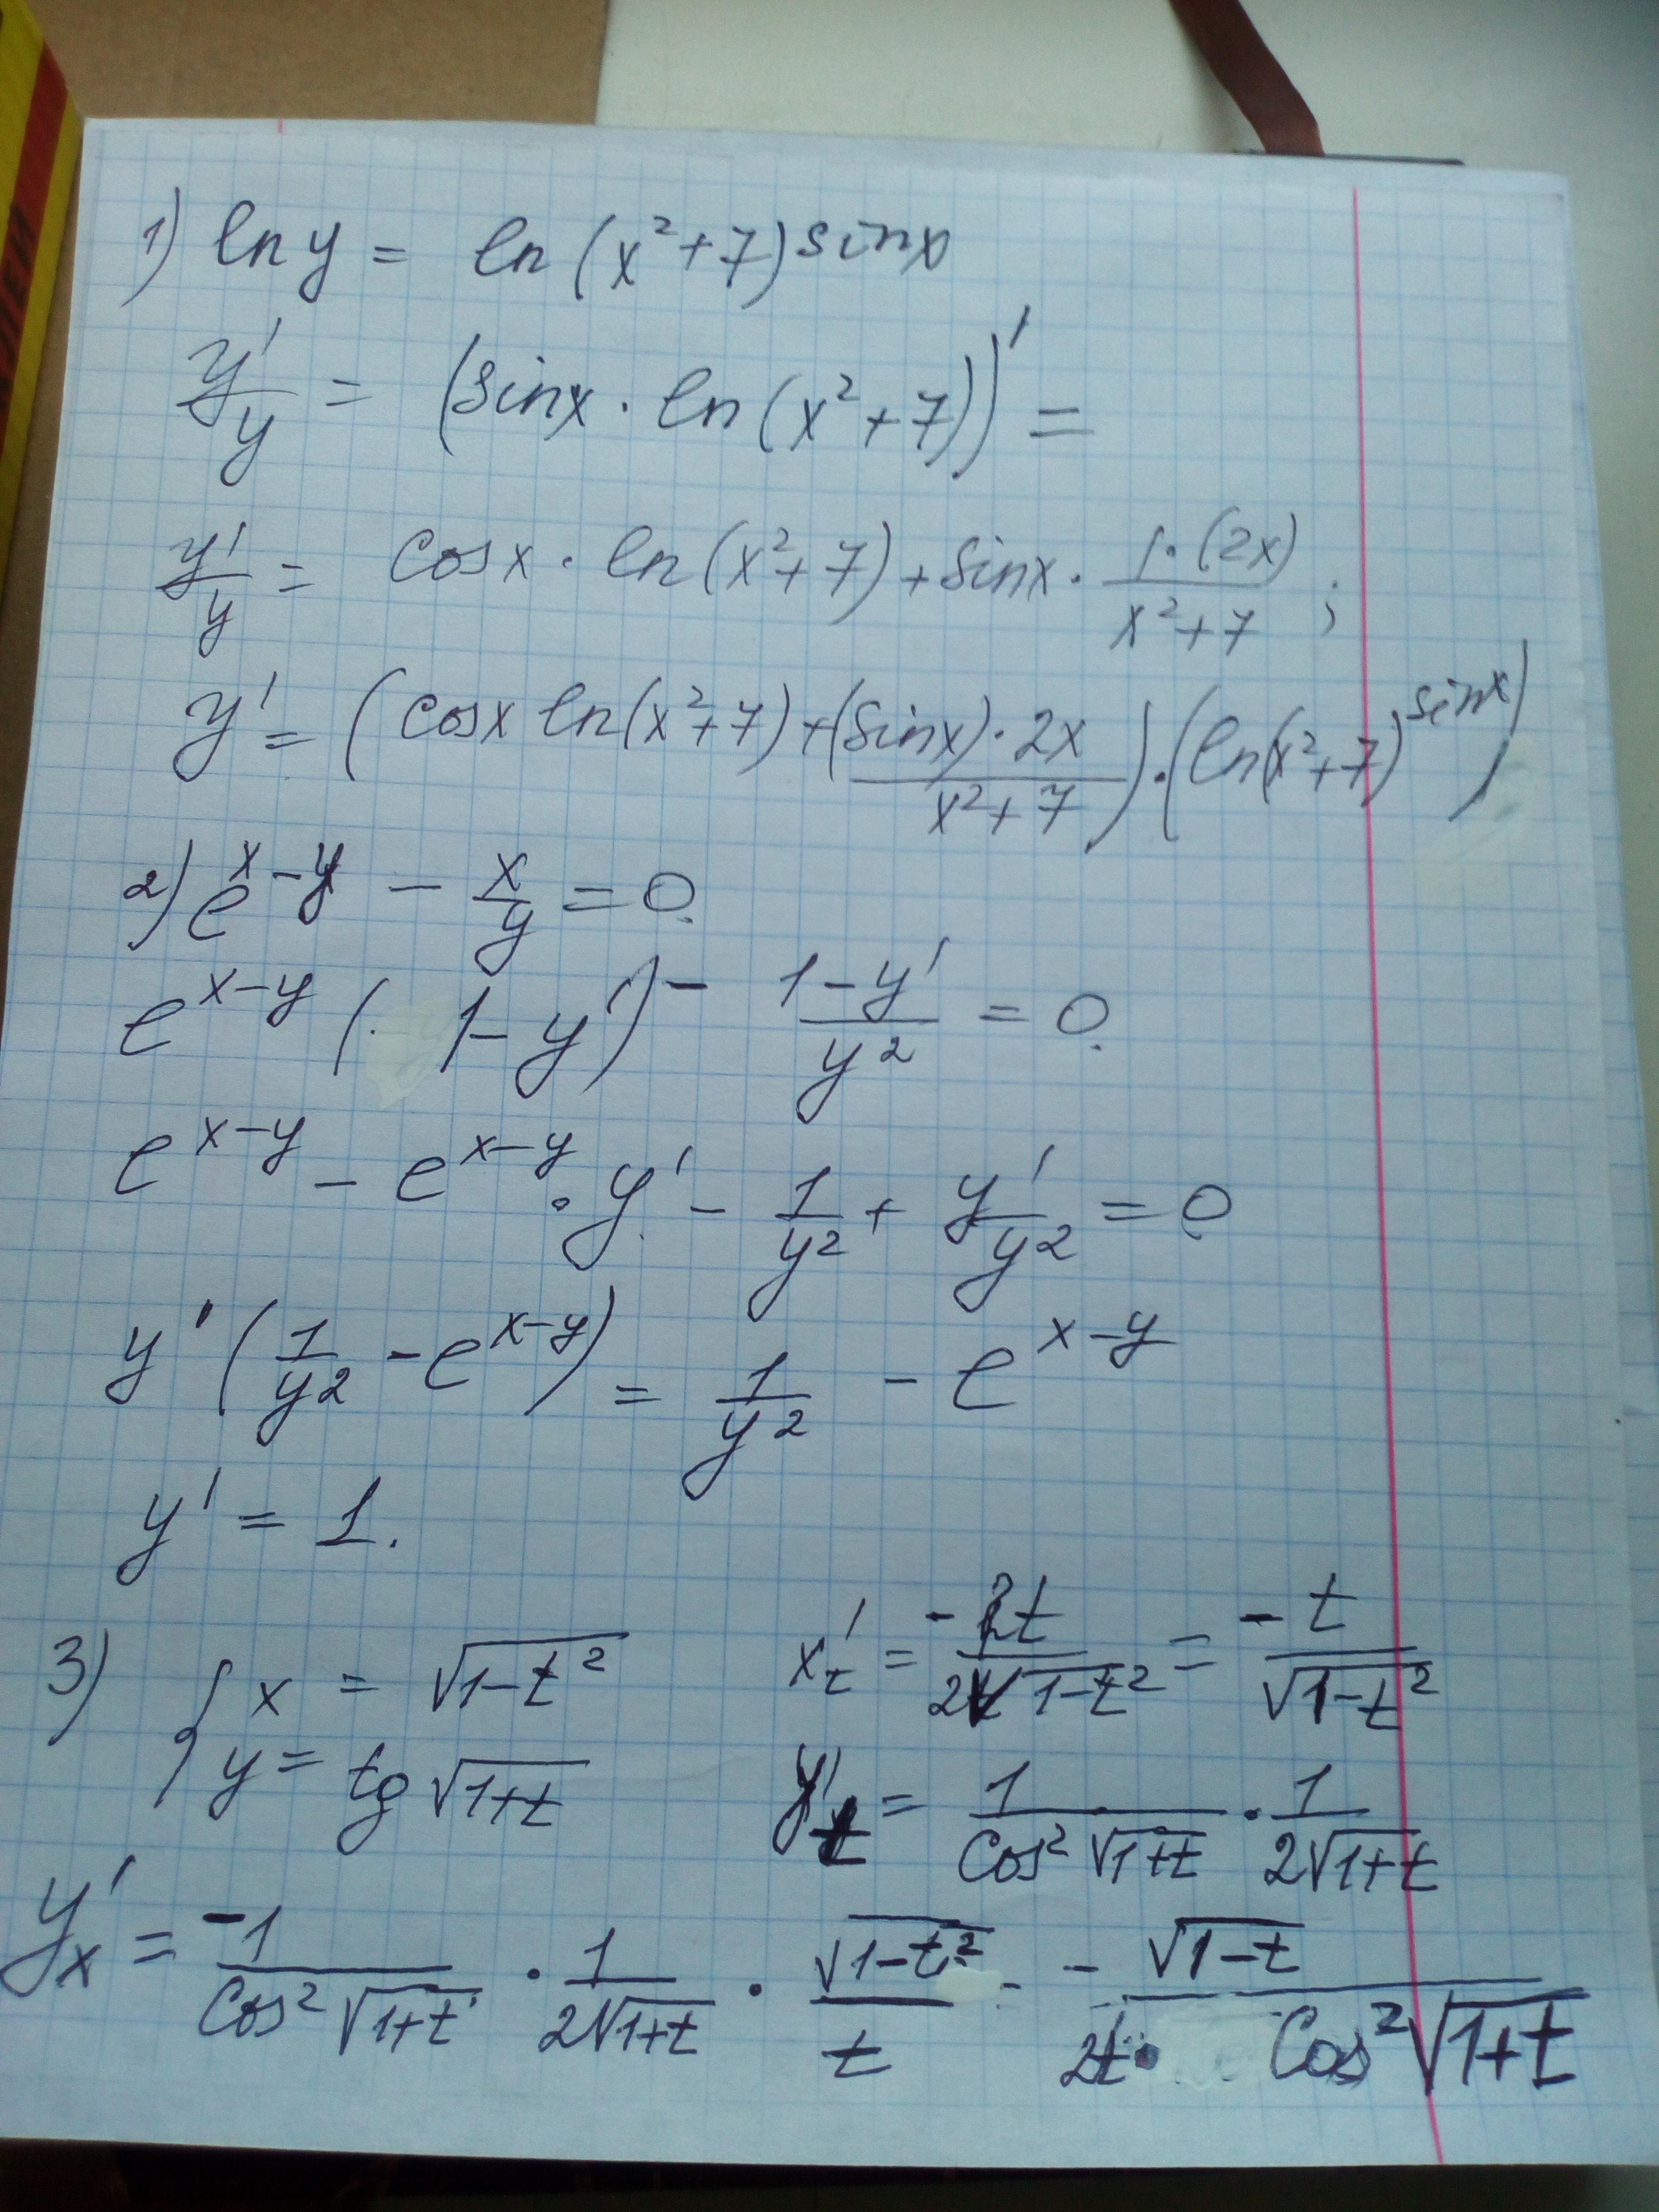 1) ln y = ln (x²+7)^sinx
y'/y = (sinx · ln (x²+7))' =
y'/y = cosx · ln(x²+7) + sinx · 1·(2x)/x²+7 ;
y' = (cosx ln(x²+7) + (sinx)·2x/x²+7) · (ln(x²+7)^sinx)
2) e^x-y - x/y = 0
e^x-y (1-y') - 1-y'/y² = 0
e^x-y - e^x-y · y' - 1/y² + y'/y² = 0
y' (1/y² - e^x-y) = 1/y² - e^x-y
y' = 1.
3) { x = √1-t²
x't = -2t/2√1-t² = -t/√1-t²
y = tg √1+t
y't = 1/cos² √1+t · 1/2√1+t
y'x = -1/cos² √1+t · 1/2√1+t · √1-t²/t = - √1-t/2t · cos² √1+t